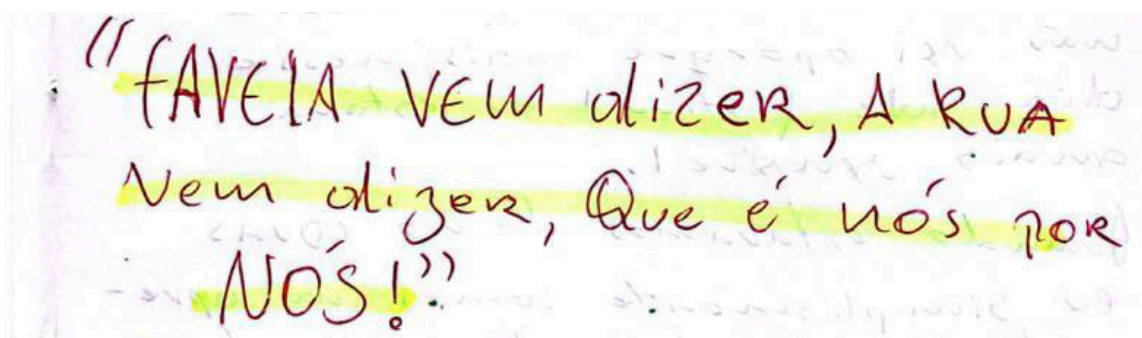 "FAVELA VEM dizeR, A RUA
Vem dizer, Que é nós poR
NÓS!"